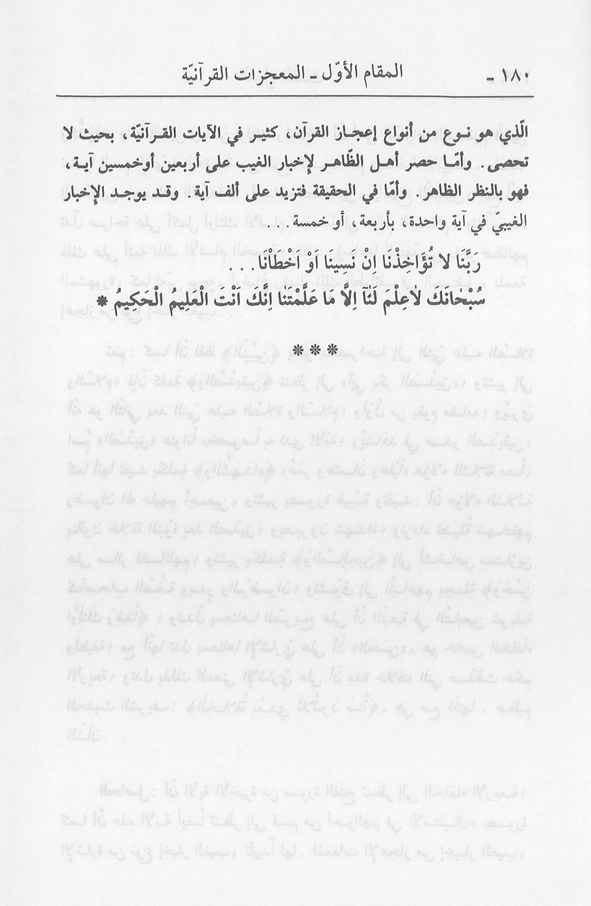 ١٨٠ - المقام الأوّل - المعجزات القرآنيّة
الّذي هو نوع من أنواع إعجاز القرآن، كثير في الآيات القرآنيّة، بحيث لا
تحصى. وأمّا حصر أهل الظّاهر لإخبار الغيب على أربعين أوخمسين آية،
فهو بالنظر الظاهر. وأمّا في الحقيقة فتزيد على ألف آية. وقد يوجد الإخبار
الغيبيّ في آية واحدة، بأربعة، أو خمسة...
رَبَّنَا لا تُؤَاخِذْنَا اِنْ نَسِينَا اَوْ اَخْطَاْنَا...
سُبْحَانَكَ لاَعِلْمَ لَنَآ اِلاَّ مَا عَلَّمْتَنَا اِنَّكَ اَنْتَ الْعَلِيمُ الْحَكِيمُ *
* * *